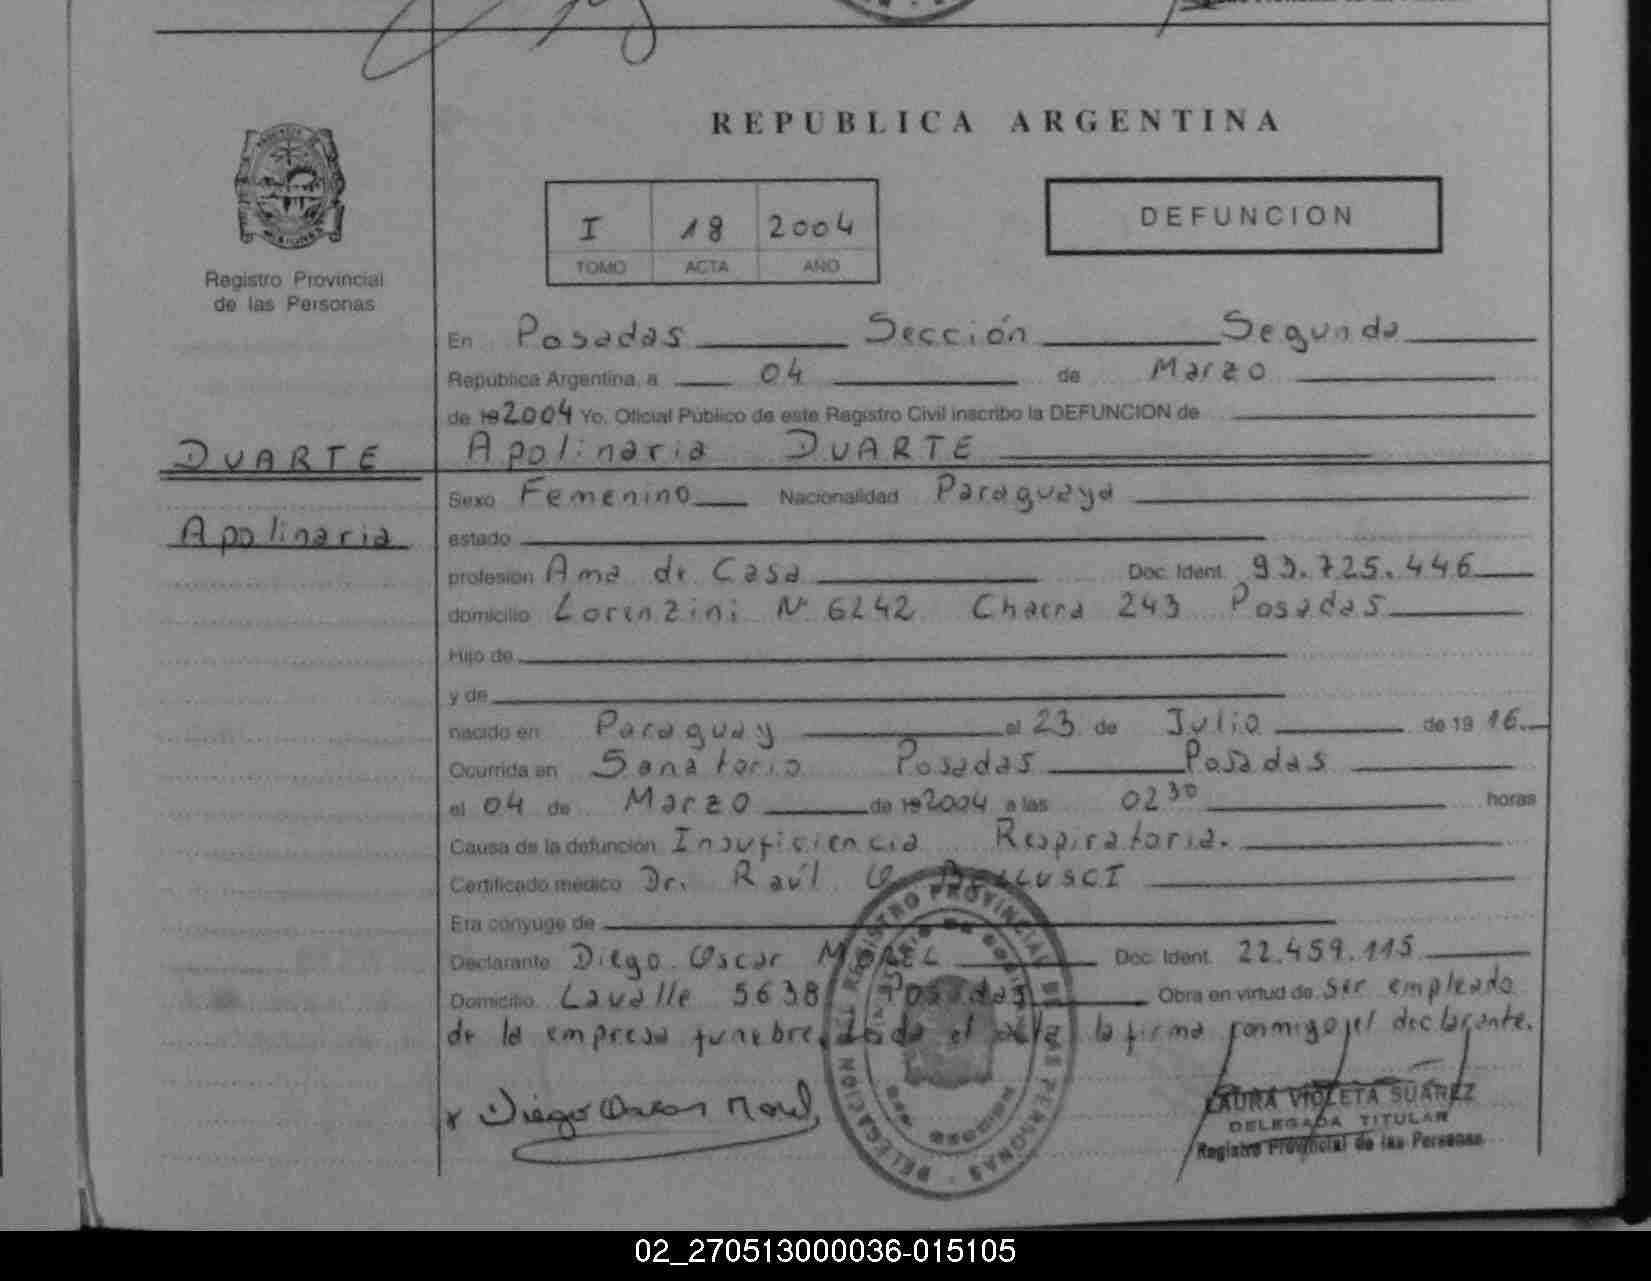 REPUBLICA ARGENTINA
I 18 2004
TOMO ACTA AÑO
DEFUNCION
Registro Provincial
de las Personas
En Posadas Sección Segunda
República Argentina, a 04 de Marzo
de 19 2004 Yo, Oficial Público de este Registro Civil inscribo la DEFUNCION de
DUARTE
Apolinaria
Apolinaria DUARTE
Sexo Femenino Nacionalidad Paraguaya
estado
profesión Ama de Casa Doc. Ident. 93.725.446
domicilio Lorenzini Nº 6242 Chacra 243 Posadas
Hijo de
y de
nacido en Paraguay el 23 de Julio de 19 16.
Ocurrida en Sanatorio Posadas Posadas
el 04 de Marzo de 19 2004 a las 02 30 horas
Causa de la defunción Insuficiencia Respiratoria.
Certificado médico Dr. Raúl
Era cónyuge de
Declarante Diego Oscar MOREL Doc. Ident. 22.459.115
Domicilio Lavalle 5638 Posadas Obra en virtud de ser empleado
de la empresa funebre, Leida el acta la firma conmigo el declarante.
x Diego Oscar Morel
REGISTRO PROVINCIAL DE LAS PERSONAS
DELEGACION
MISIONES
LAURA VIOLETA SUAREZ
DELEGADA TITULAR
Registro Provincial de las Personas
02_270513000036-015105